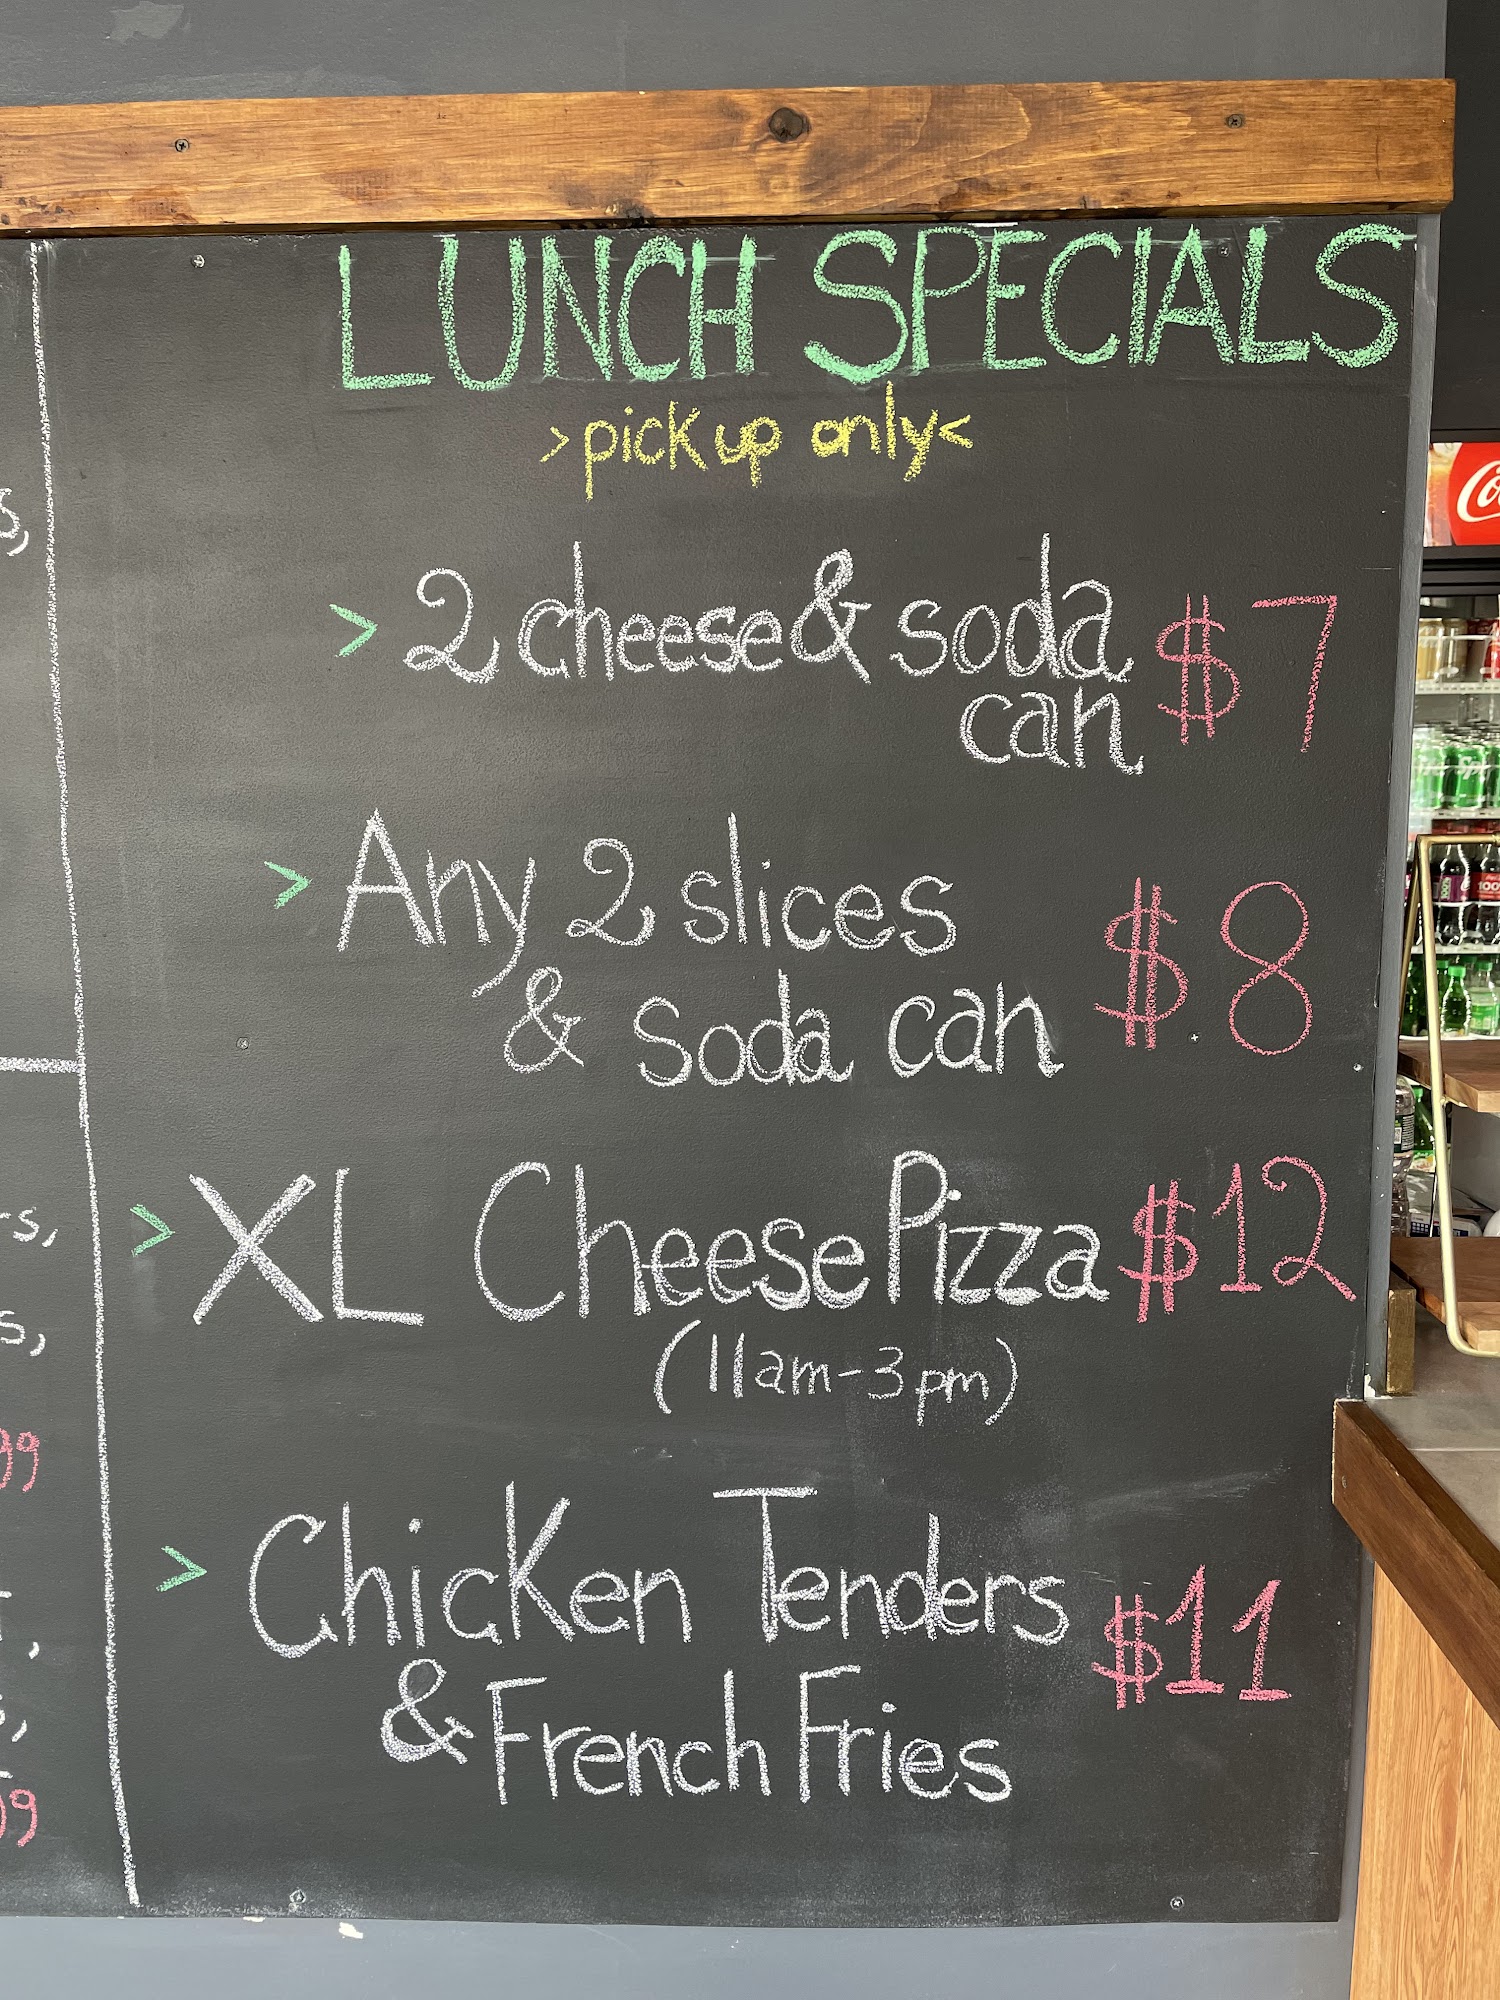 LUNCH SPECIALS
>pick up only<
> 2 cheese & soda can $7
> Any 2 slices
& soda can $8
> XL Cheese Pizza $12
(11am-3pm)
> Chicken Tenders
& French Fries $11